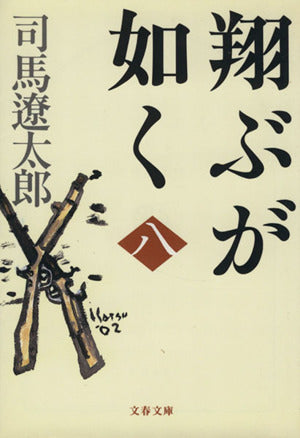 翔ぶが
如く
八
司馬遼太郎
'02
文春文庫